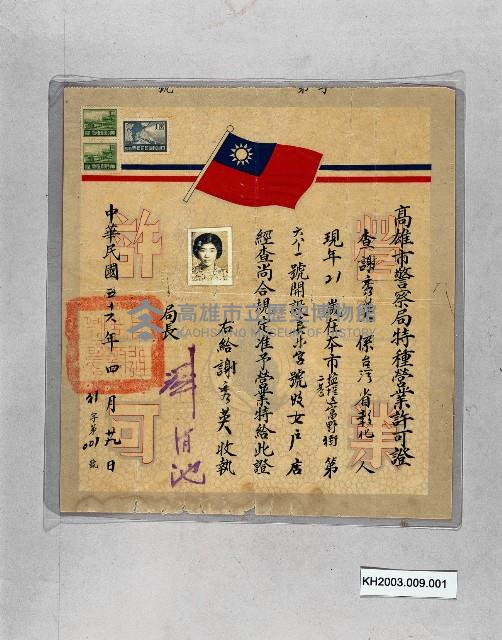 高雄市警察局特種營業許可證
查謝秀英 係台灣省彰化 人
現年 21 歲在本市鹽埕區富野街 第
六八一號開設長出字號妓女戶 店
經查尚合規定准予營業特給此證
右給謝秀英收執
局長
中華民國五十六年四月 日
字第 001 號
營業
許可
高雄市立歷史博物館
KAOHSIUNG MUSEUM OF HISTORY
KH2003.009.001